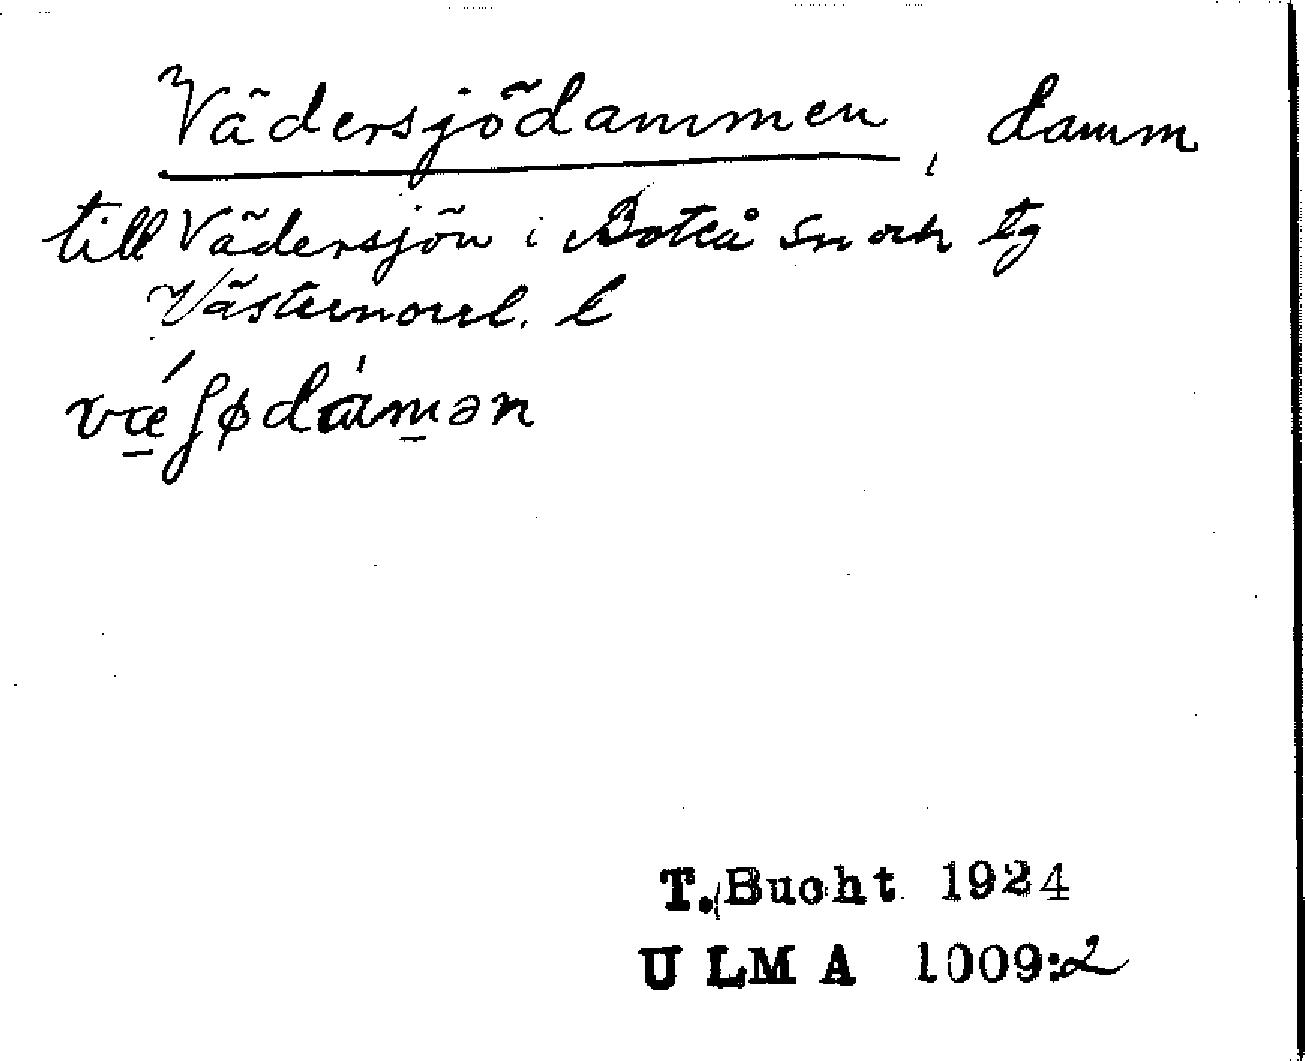 Vädersjödammen, damm
till Vädersjön i Boteå sn och tg
Västernorrl. l
vǽ̱ʃødàm̱ən
T. Bucht 1924
ULMA 1009:2